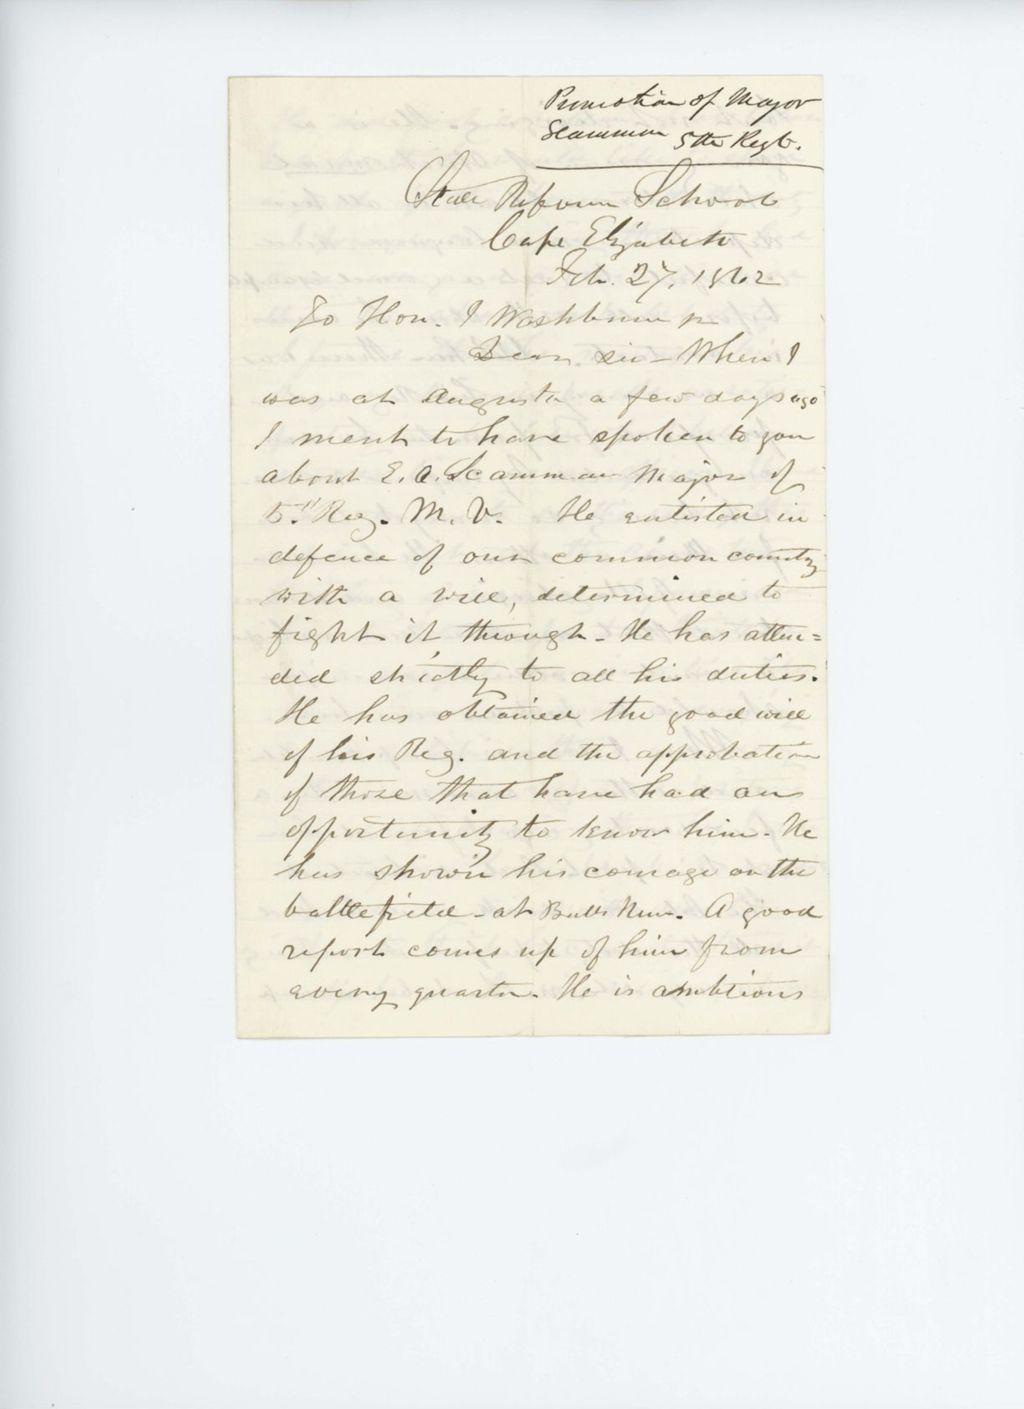 Promotion of Major
Scamman 5th Regt.
State Reform School
Cape Elizabeth
Feb. 27, 1862
To Hon. I Washburn jr
Dear sir - When I
was at Augusta a few days ago
I ment to have spoken to you
about E. A. Scamman Major of
5." Reg. M. V. He enlisted in
defence of our common country
with a will, determined to
fight it through - He has atten=
ded strictly to all his duties.
He has obtained the good will
of his Reg. and the approbation
of those that have had an
opportunity to know him. He
has shown his courage on the
battlefield - at Bulls Run. A good
report comes up of him from
every quarter. He is ambtious